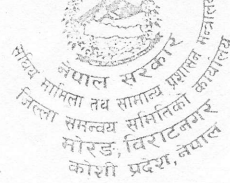 नेपाल सरकार
संघिय मामिला तथा सामान्य प्रशासन मन्त्रालय
जिल्ला समन्वय समितिको कार्यालय
मोरङ, विराटनगर
कोशी प्रदेश, नेपाल